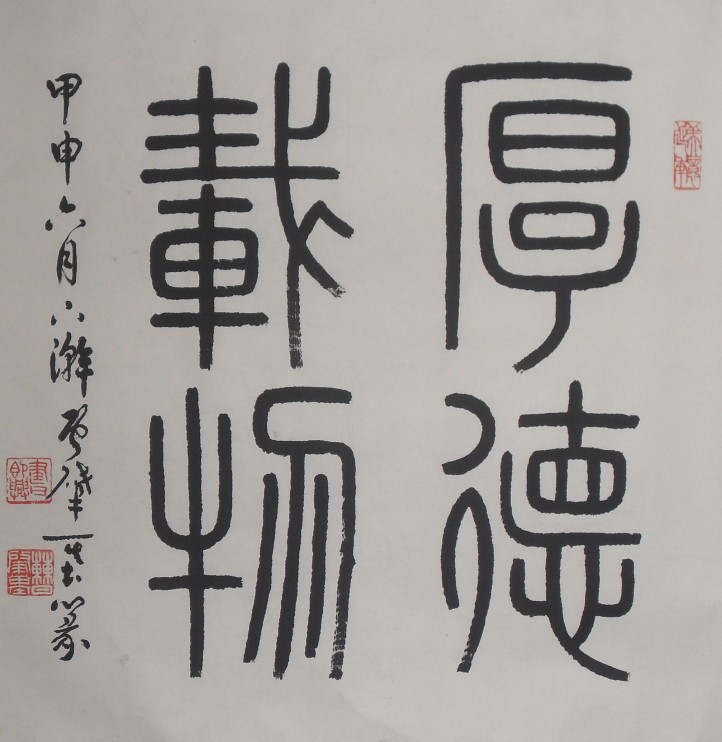 厚德
載物
甲申六月下澣
篆